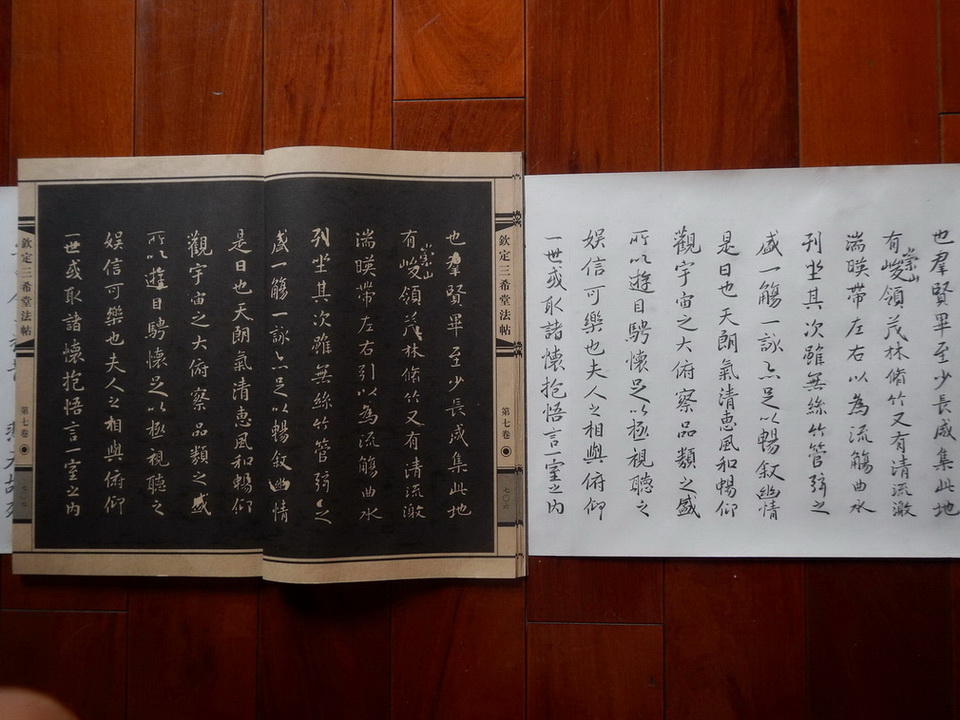 欽定三希堂法帖
第七卷
七〇六
也羣賢畢至少長咸集此地
有崇山峻領茂林脩竹又有清流激
湍暎帶左右引以為流觴曲水
列坐其次雖無絲竹管弦之
盛一觴一詠亦足以暢敘幽情
是日也天朗氣清惠風和暢仰
觀宇宙之大俯察品類之盛
所以遊目騁懷足以極視聽之
娛信可樂也夫人之相與俯仰
一世或取諸懷抱悟言一室之內
欽定三希堂法帖
第七卷
也羣賢畢至少長咸集此地
有崇山峻領茂林脩竹又有清流激
湍暎帶左右以為流觴曲水
列坐其次雖無絲竹管弦之
盛一觴一詠亦足以暢敘幽情
是日也天朗氣清惠風和暢仰
觀宇宙之大俯察品類之盛
所以遊目騁懷足以極視聽之
娛信可樂也夫人之相與俯仰
一世或取諸懷抱悟言一室之內